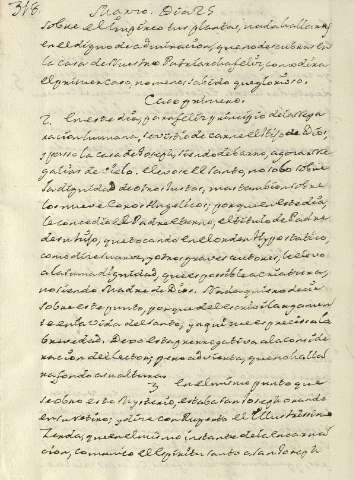 318. Marzo. Dia 25
sobre el Empireo tus plantas, nada hallaras
en el digno de admiracion, quando descubras en
la Casa de Nuestro Patriarcha feliz, como dira
el primer caso, no menos sabido que glorioso.
Caso primero.
2. En este dia, para feliz principio de la Repa
racion humana, se vistio de carne el Hijo de Dios,
y passo la casa de Joseph, siendo de barro, a gozar Re
galias de Cielo. Elevose el Santo, no solo sobre
la dignidad de otros Justos, mas tambien sobre
los nueve Coros Angelicos; porque en este dia,
le concedio el Padre Eterno, el titulo de Padre
de su hijo, que tocando en el orden Hypostatico,
como dize Suarez, y otros graves autores, le elevo
a la suma dignidad, que es possible a criaturas,
no siendo Madre de Dios. Nada quiero dezir
sobre este punto, porque del escrivi largamen
te en la Vida del Santo; y aqui me es precisa la
brevedad. Dexo esta prerrogativa a la consi
deracion del Lector; pero advierta, que no halla
ra fondo a su altura.
3 En el mismo punto que
se obro este Mysterio, estaba San Joseph orando
en su retiro; y dize con Ruperto el Illustrissimo
Zerda, que en el mismo instante de la Encarna
cion, comunico el Espiritu Santo a San Joseph